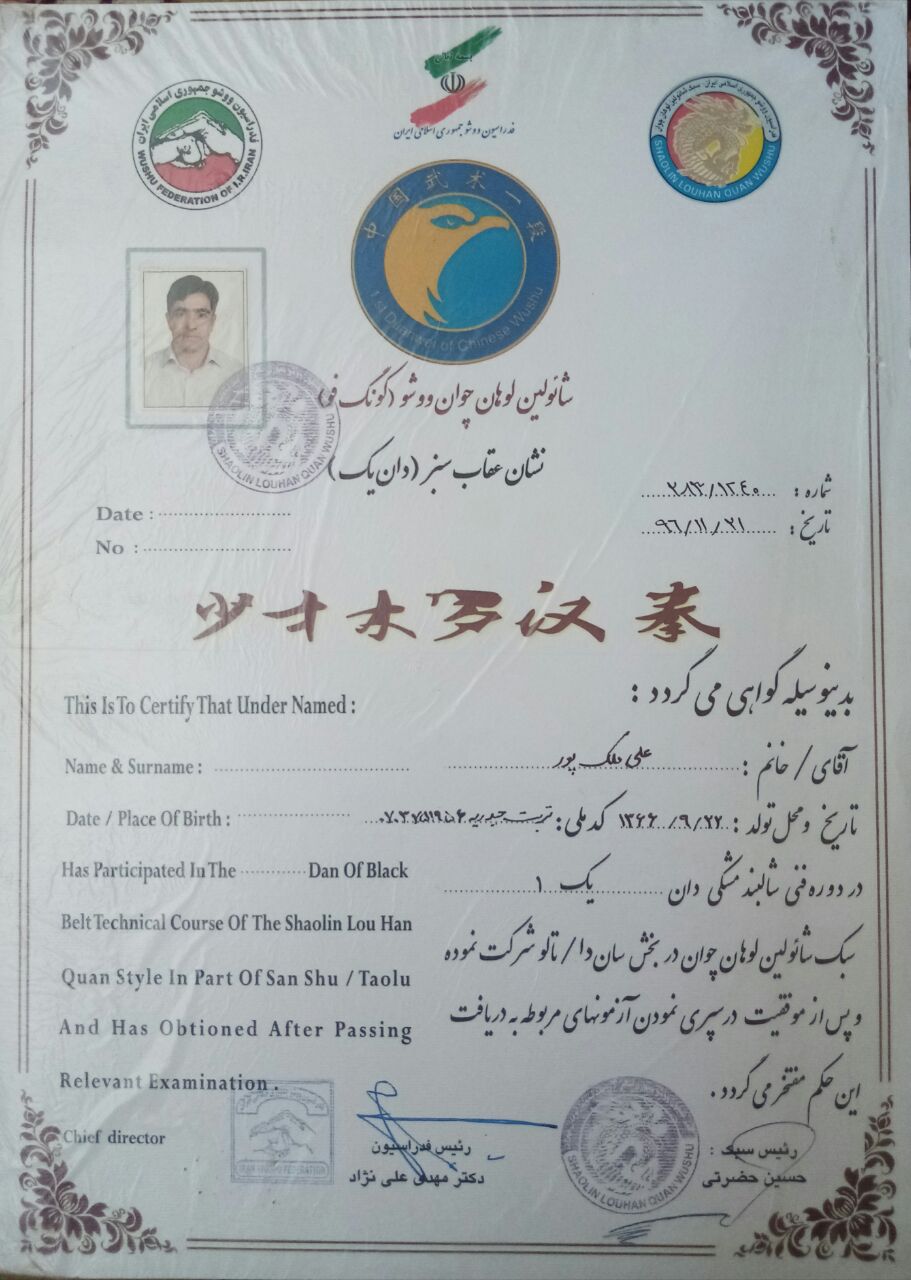 بسمه تعالی
فدراسیون ووشو جمهوری اسلامی ایران
فدراسیون ووشو جمهوری اسلامی ایران
WUSHU FEDERATION OF I.R.IRAN
SHAOLIN LOUHAN QUAN WUSHU
中国武术一段
1st Duanwei of Chinese Wushu
شائولین لوهان چوان ووشو (کونگ فو)
نشان عقاب سبز (دان یک)
SHAOLIN LOUHAN QUAN WUSHU
شماره : ۲۸۳/۱۲۴۰
Date :
تاریخ : ۹۶/۱۱/۲۱
No :
少林罗汉拳
This Is To Certify That Under Named :
بدینوسیله گواهی می گردد :
Name & Surname :
آقای / خانم : علی ملک پور
Date / Place Of Birth :
تاریخ و محل تولد : ۱۳۶۶/۹/۲۲ تربت حیدریه کد ملی :
Has Participated In The Dan Of Black
در دوره فنی شالبند مشکی دان یک ۱
Belt Technical Course Of The Shaolin Lou Han
سبک شائولین لوهان چوان در بخش سان دا / تالو شرکت نموده
Quan Style In Part Of San Shu / Taolu
و پس از موفقیت در سپری نمودن آزمونهای مربوطه به دریافت
And Has Obtioned After Passing
این حکم مفتخر می گردد .
Relevant Examination .
Chief director
رئیس فدراسیون
دکتر مهدی علی نژاد
رئیس سبک :
حسین حضرتی
IRAN WUSHU FEDERATION
SHAOLIN LOUHAN QUAN WUSHU